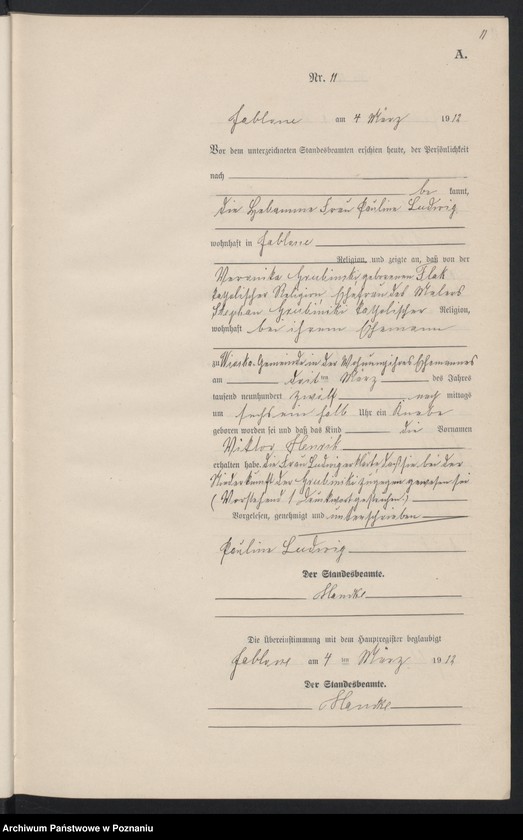 11
A.
Nr. 11
Jablone am 4 März 1912
Vor dem unterzeichneten Standesbeamten erschien heute, der Persönlichkeit
nach
be kannt,
die Hebamme Frau Pauline Ludwig
wohnhaft in Jablone
Religion, und zeigte an, daß von der
Veronika Grubinski geborenen Flak
katholischer Religion Ehefrau des Malers
Stephan Grubinski katholischer Religion,
wohnhaft bei ihrem Ehemann
zu Wioska. Gemeinde in der Wohnung ihres Ehemannes
am dritten März des Jahres
tausend neunhundert zwölf nach mittags
um sechs ein halb Uhr ein Knabe
geboren worden sei und daß das Kind die Vornamen
Viktor Henrik
erhalten habe. die Frau Ludwig erklärte daß sie bei der
Niederkunft der Grubinski zugegen gewesen sei
(Vorstehend 1 Druckwort gestrichen.)
Vorgelesen, genehmigt und unterschrieben
Pauline Ludwig
Der Standesbeamte.
Die Übereinstimmung mit dem Hauptregister beglaubigt
Jablone am 4 ten März 1912
Der Standesbeamte.
Archiwum Państwowe w Poznaniu